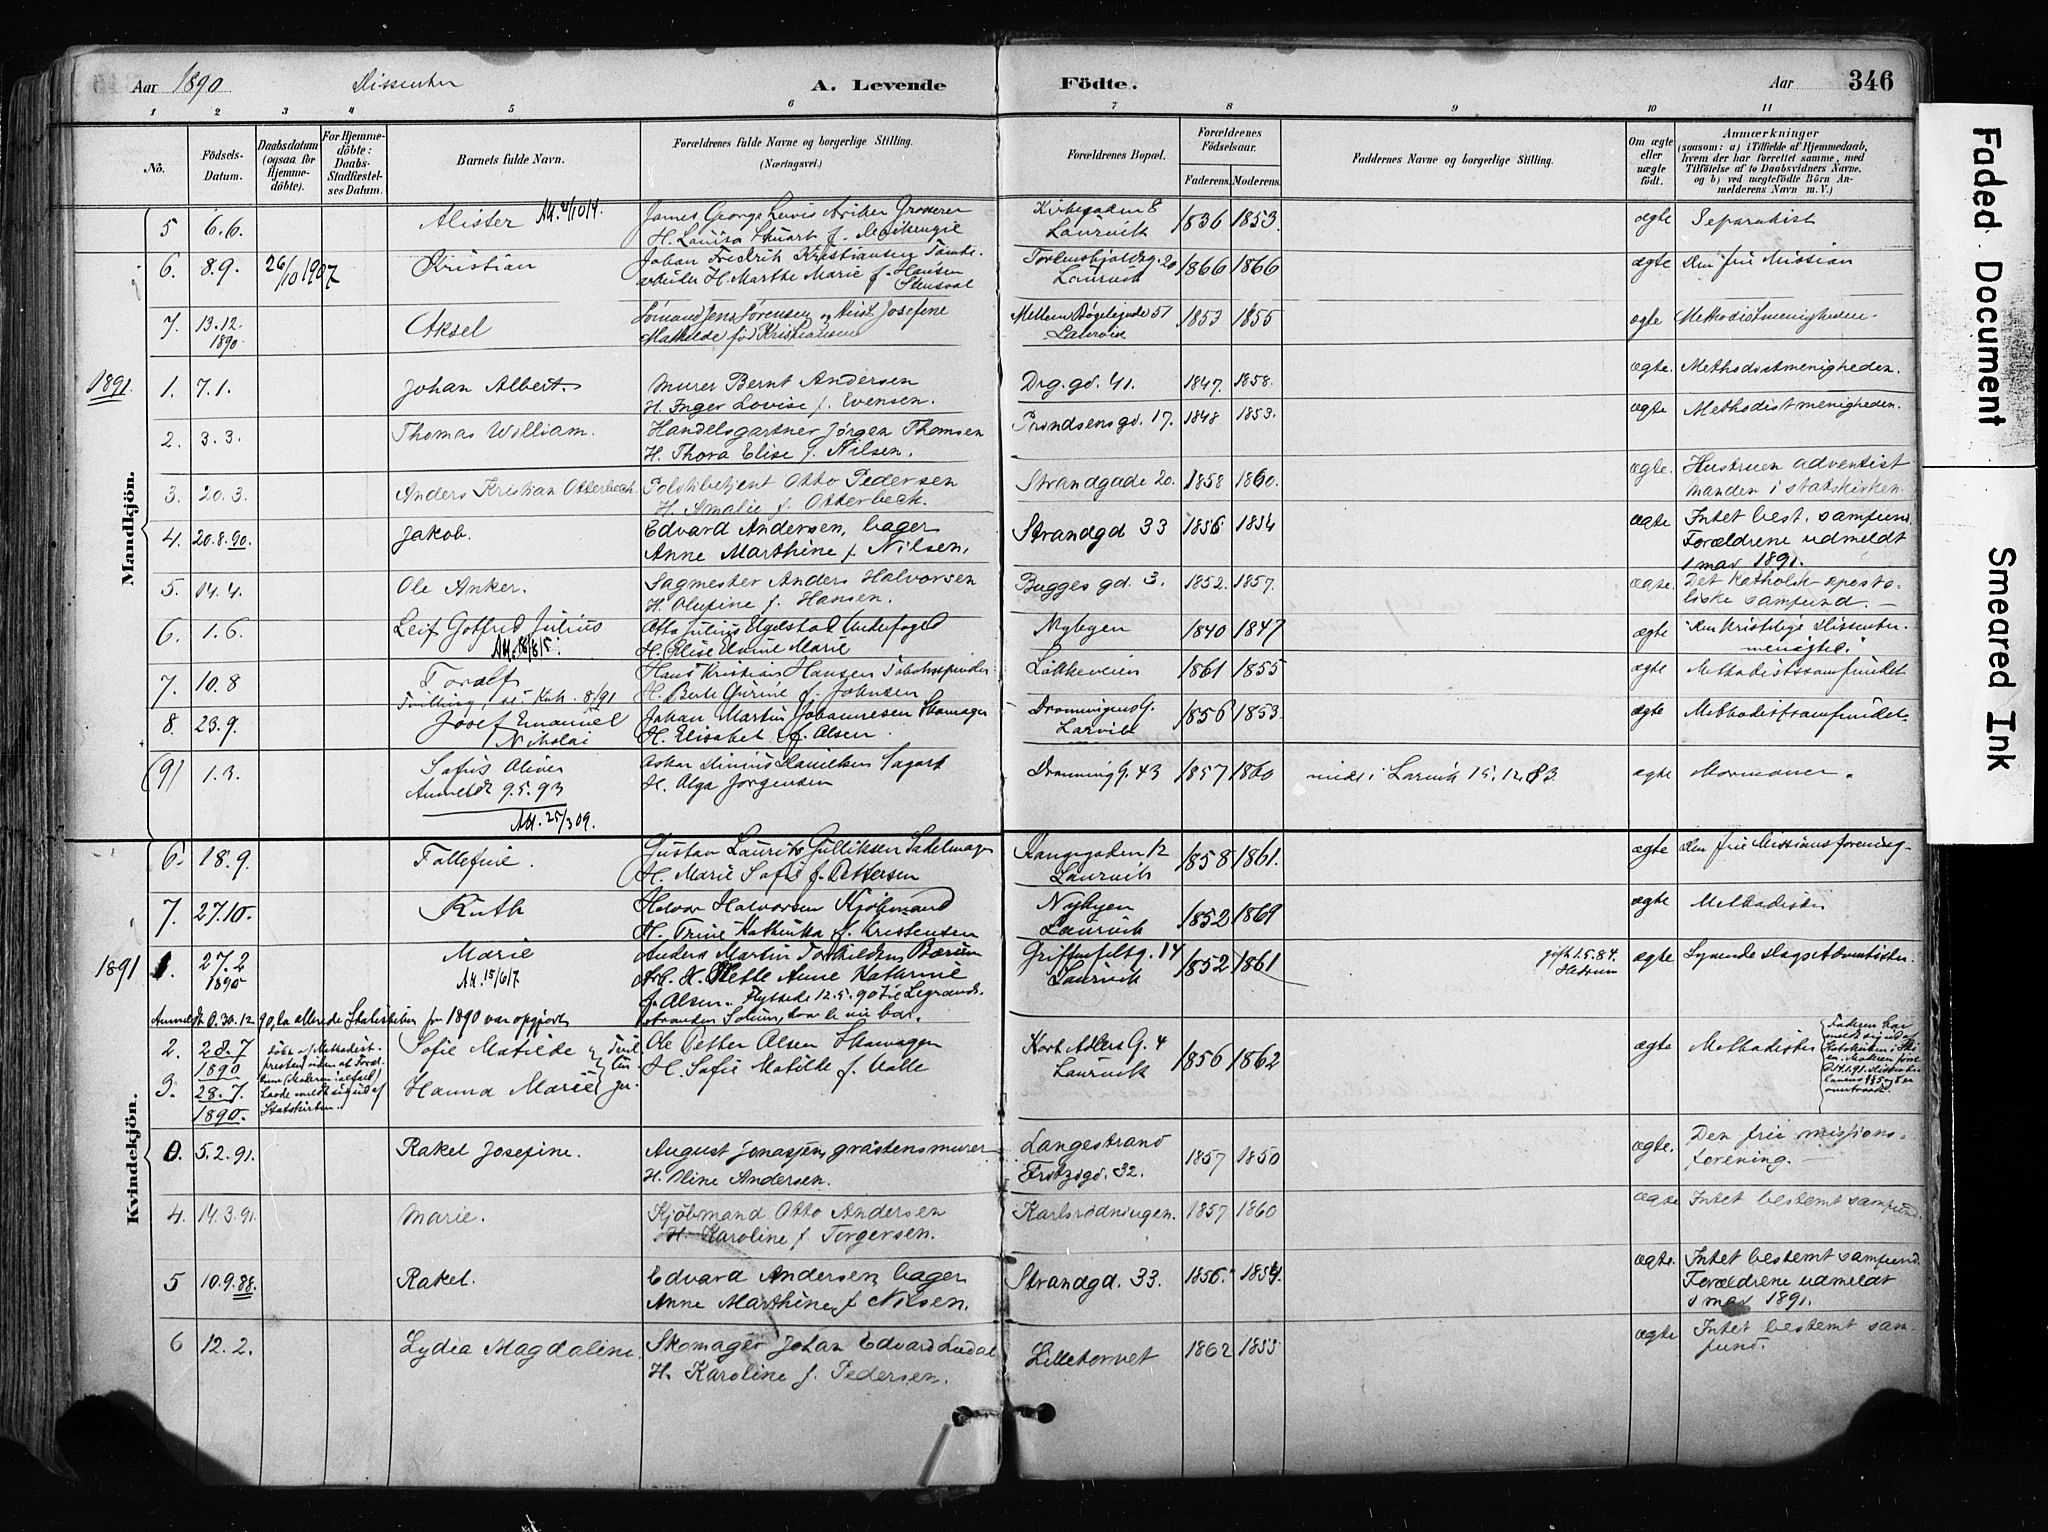 Aar 1890 Dissenter A. Levende Fødte. Aar 346
1 2 3 4 5 6 7 8 9 10 11
No. Födsels-Datum. Daabsdatum (ogsaa for Hjemmedöbte). For Hjemmedöbte: Daabs-Stadfæstelses Datum. Barnets fulde Navn. Forældrenes fulde Navne og borgerlige Stilling. (Næringsvei.) Forældrenes Bopæl. Forældrenes Födselsaar. Faderens. Moderens. Faddernes Navne og borgerlige Stilling. Om ægte eller uægte födt. Anmærkninger (saasom: a) i Tilfælde af Hjemmedaab, hvem der har forrettet samme, med Tilföielse af to Daabsvidners Navne, og b) ved uægtefödte Börn Anmelderens Navn m. V.)
Mandkjön.
5 6.6. Alister James George Lewis Archer Grosserer Kirkegaden 8 1836 1853. ægte Separatist
H. Louisa Stuart f. Mackenzie Laurvik
6. 8.9. 26/10 1907 Kristian Johan Fredrik Kristiansen Tomte- Tordenskjoldsg. 20 1866 1866 ægte Den frie Mission
arbeider H. Marthe Marie f. Hansen Laurvik
7. 13.12. 1890 Aksel Sømand Jens Sørensen og Hust. Josefine Mellem Bøgelunde 51 1853 1855 ægte Methodistmenigheden.
Mathilde fød Kristiansen Laurvik
1891 1. 7.1. Johan Albert. Murer Bernt Andersen Drg. gd. 41. 1847. 1858. ægte. Methodistmenigheden.
H. Inger Lovise f. Evensen.
2. 3.3. Thomas William. Handelsgartner Jørgen Thomsen Prindsensgd. 17. 1848 1853. ægte Methodistmenigheden.
H. Thora Elise f. Nilsen.
3. 20.3. Anders Kristian Otterbech. Politibetjent Otto Pedersen Strandgade 20. 1858 1860. ægte. Hustruen adventist
H. Amalie f. Otterbech. Manden i statskirken.
4. 20.8.90. Jakob. Edvard Andersen, bager Strandgd 33 1856. 1854 ægte Intet best. samfund.
Anne Marthine f Nilsen. Forældrene udmeldt
1 mai 1891.
5. 14.4. Ole Anker. Sagmester Anders Halvorsen Bugges gd. 3. 1852. 1857. ægte. Det katholsk aposto-
H. Olufine f. Hansen. liske samfund.
6. 1.6. Leif Gotfred Julius Otto Julius Ugelstad Underfoged Nybyen 1840 1847 ægte Den Kristelige Dissenter-
H. Elise Marie menighed.
7. 10.8 Toralf Hans Kristian Hansen Tobakspinder Løkkeveien 1861 1855 ægte Methodistsamfundet
Tvilling, se Kvk. 8/91 H. Berte Gurine f. Johnsen
8. 23.9. Josef Emanuel Johan Martin Johannesen Skomager Dronningens G. 1856 1853. ægte Methodistsamfundet.
Nikolai H. Elisabet f. Olsen. Larvik
(9) 1.3. Sofus Oliver Oskar Danielsen Sagarb. Dronning G. 43 1857 1860 viede i Larvik 15.12.83 ægte Mormoner.
Anmeldt 9.5.93 H. Olga Jørgensen
Att. 25/3 09.
Kvindekjön.
6. 18.9. Tollefine. Gustav Laurits Gulliksen Sadelmager Kongegaden 12 1858 1861. ægte Den frie Missionsforening
H. Marie Sofie f. Pettersen Laurvik
7. 27.10. Ruth Halvor Halvorsen Kjøbmand Nybyen 1852 1869 ægte Methodister
H. Trine Kathinka f. Kristensen Laurvik
1891 1. 27.2 1890 Marie Anders Martin Torkildsen Bærum Griffenfeldtg. 14 1852 1861 gift 1.5.84. Hedrum ægte Syvende Dags Adventister.
Att. 15/6 17 Arb. H. Mette Anne Kathrine Laurvik
f. Olsen. Flyttede 12.5.90 til Legrands-
Anmeldt 30.12.90, da allerede Statistiken for 1890 var opgjort. stranden Solum, hvor de nu bor.
2. 28.7 1890 Sofie Matilde Ole Petter Olsen Skomager Kort Adlers G. 4 1856 1862 ægte Methodister
3. 28.7. 1890. Hanna Marie H. Sofie Matilde f. Valle Laurvik
0. 5.2.91. Rakel Josefine. August Jonassen, gråstensmurer Langestrand 1857 1850 ægte. Den frie missions-
H. Oline Andersen. Fritzøgd. 32. forening.
4. 14.3.91. Marie. Kjöbmand Otto Andersen Karlsrødningen. 1857 1860 ægte Intet bestemt samfund.
H. Karoline f. Torgersen.
5 10.9.88. Rakel. Edvard Andersen, bager Strandgd. 33. 1856. 1854. ægte. Intet bestemt samfund.
Anne Marthine f Nilsen. Forældrene udmeldt
1 mai 1891.
6 12.2. Lydia Magdaline. Skomager Johan Edvard Lindal Lilletorvet 1862 1855 ægte Intet bestemt sam-
H. Karoline f. Pedersen. fund.
Faded Document
Smeared Ink